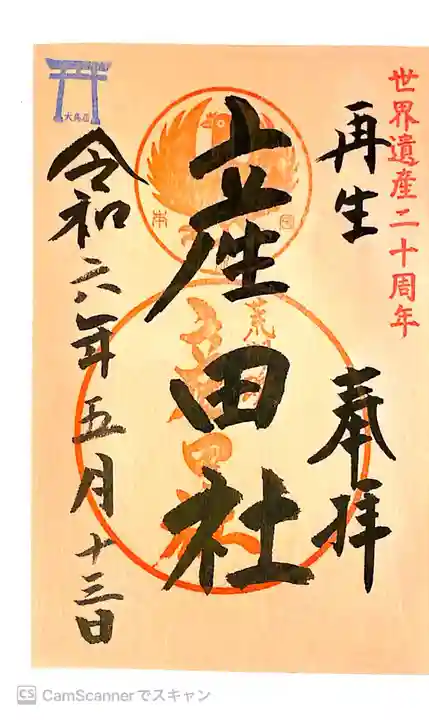 世界遺産二十周年
再生
奉拝
産田社
令和六年五月十三日
大鳥居
CS CamScannerでスキャン